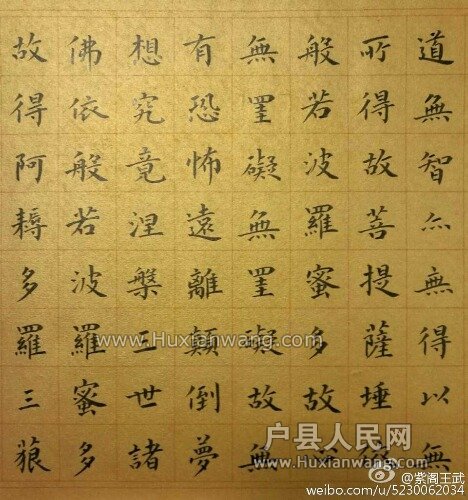 道無智亦無得以無
所得故菩提薩埵
般若波羅蜜多故
無罣礙無罣礙故無
有恐怖遠離顛倒夢
想究竟涅槃三世諸
佛依般若波羅蜜多
故得阿耨多羅三藐
www.Huxianwang.com
户县人民网
Huxianwang.com
@紫阁王武
weibo.com/u/5230062034